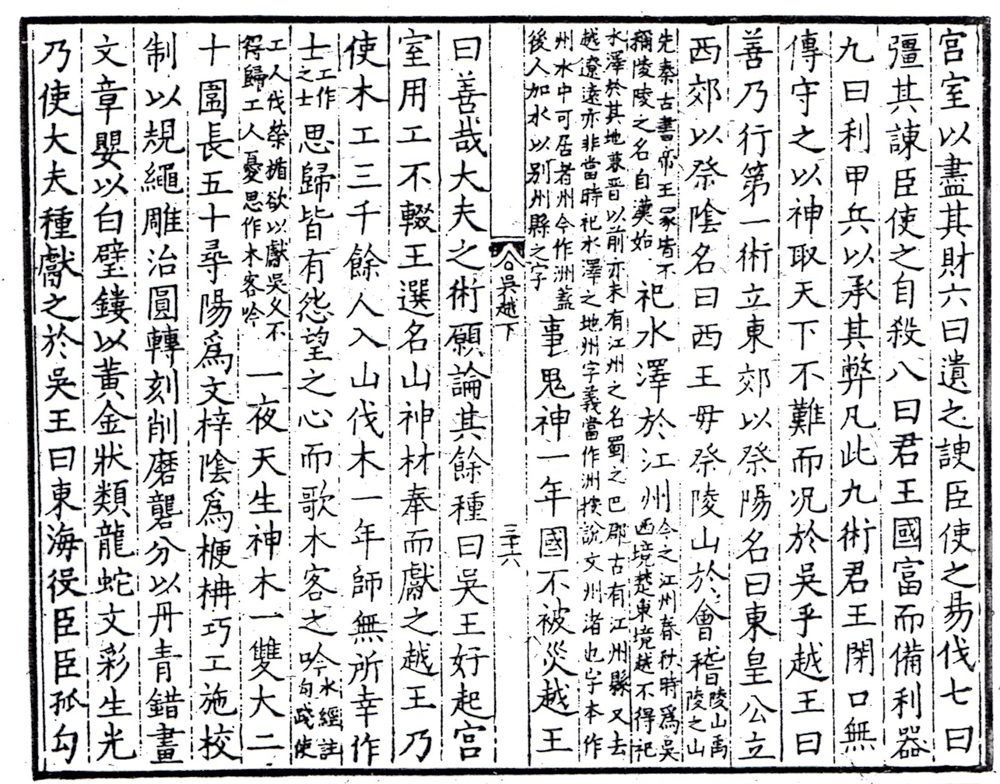 宫室以盡其財六曰遺之諛臣使之易伐七曰
彊其諫臣使之自殺八曰君王國富而備利器
九曰利甲兵以承其弊凡此九術君王閉口無
傳守之以神取天下不難而况於吳乎越王曰
善乃行第一術立東郊以祭陽名曰東皇公立
西郊以祭陰名曰西王母祭陵山於會稽陵山禹陵之山
先秦古書帝王冢皆不稱陵陵之名自漢始祀水澤於江州今之江州春秋時為吳西境楚東境越不得祀
水澤於其地兼晉以前亦未有江州之名蜀之巴郡古有江州縣又去越遼遠亦非當時祀水澤之地州字義當作洲按說文州渚也字本作
州水中可居者州今作洲蓋後人加水以別州縣之字事鬼神一年國不被災越王
吳越下 三十六
曰善哉大夫之術願論其餘種曰吳王好起宮
室用工不輟王選名山神材奉而獻之越王乃
使木工三千餘人入山伐木一年師無所幸作
士工作之士思歸皆有怨望之心而歌木客之吟水經註句踐使
工人伐榮楯欲以獻吳久不得歸工人憂思作木客吟一夜天生神木一雙大二
十圍長五十尋陽爲文梓陰爲楩柟巧工施校
制以規繩雕治圓轉刻削磨礱分以丹青錯畫
文章嬰以白璧鏤以黃金狀類龍蛇文彩生光
乃使大夫種獻之於吳王曰東海役臣臣孤勾